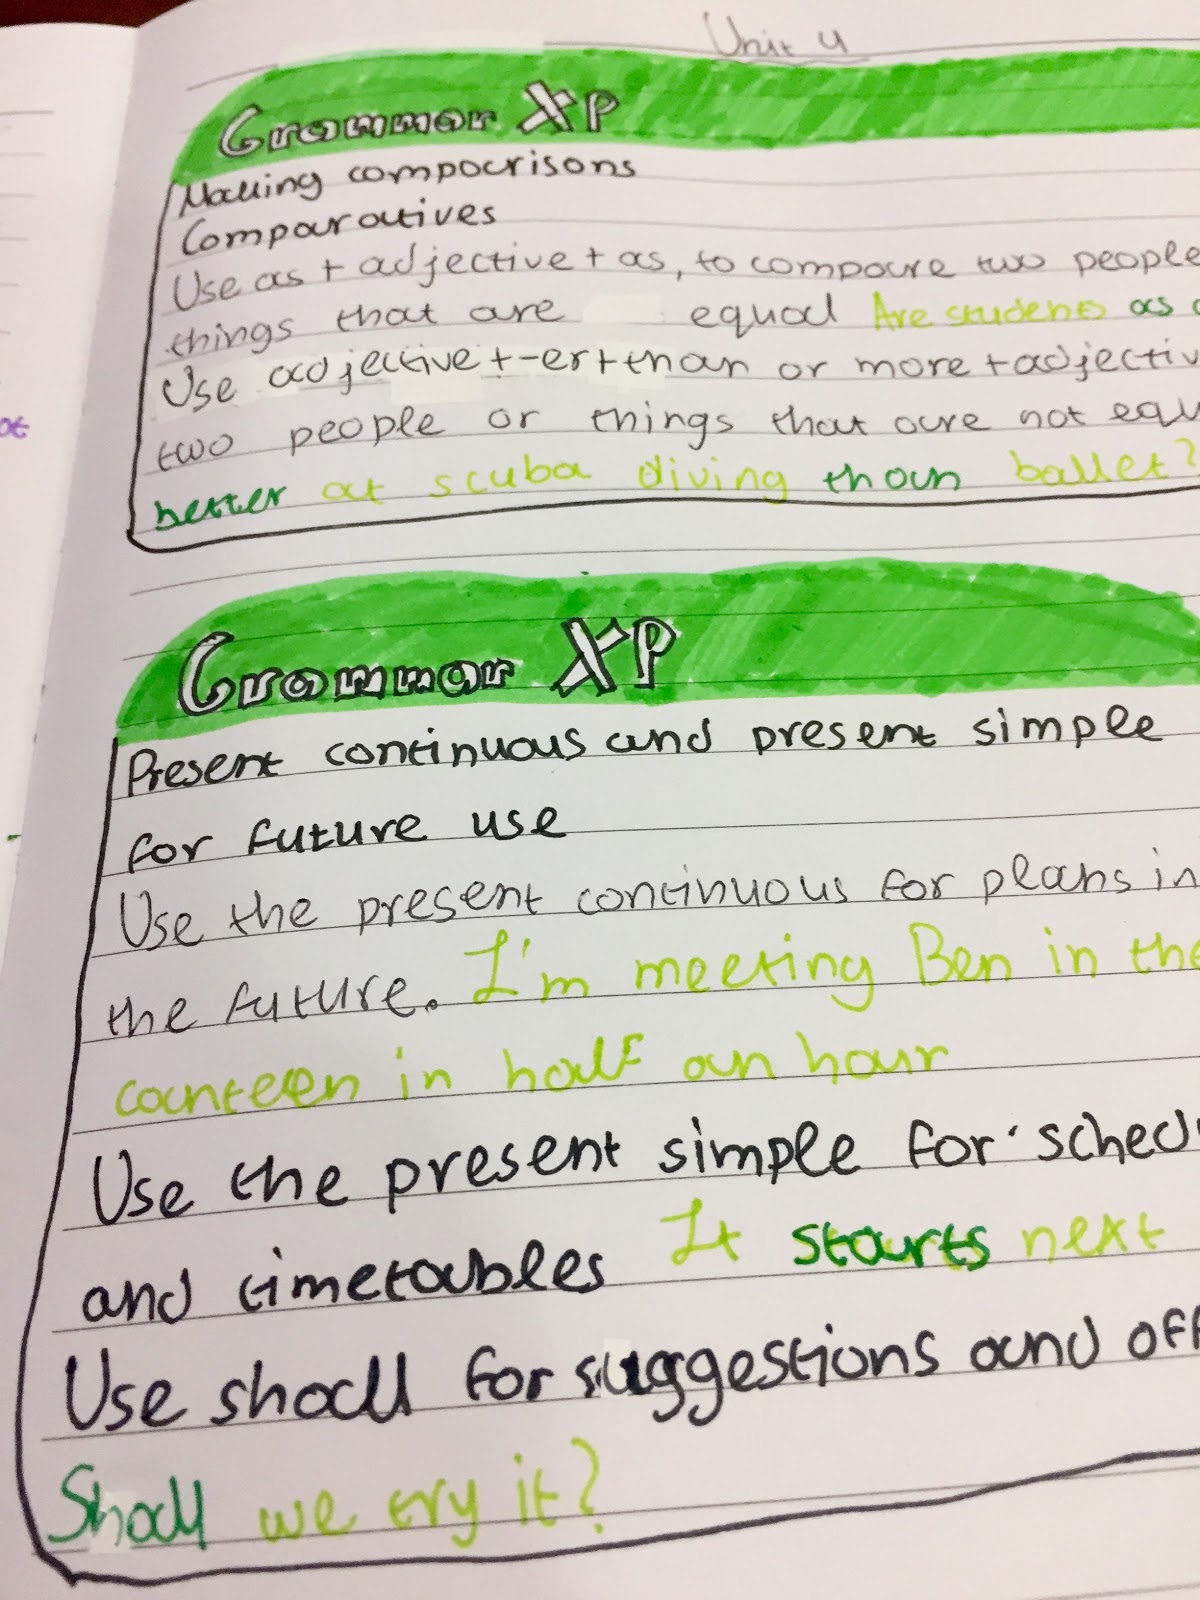 Unit 4
Grammar XP
Making comparisons
Comparatives
Use as + adjective + as, to compare two people
things that are equal Are students as
Use adjective + -er + than or more + adjectiv
two people or things that are not equ
better at scuba diving than ballet?
Grammar XP
Present continuous and present simple
for future use
Use the present continuous for plans in
the future. I'm meeting Ben in the
counteen in half an hour
Use the present simple for sched
and timetables It starts next
Use shall for suggestions and off
Shall we try it?
at